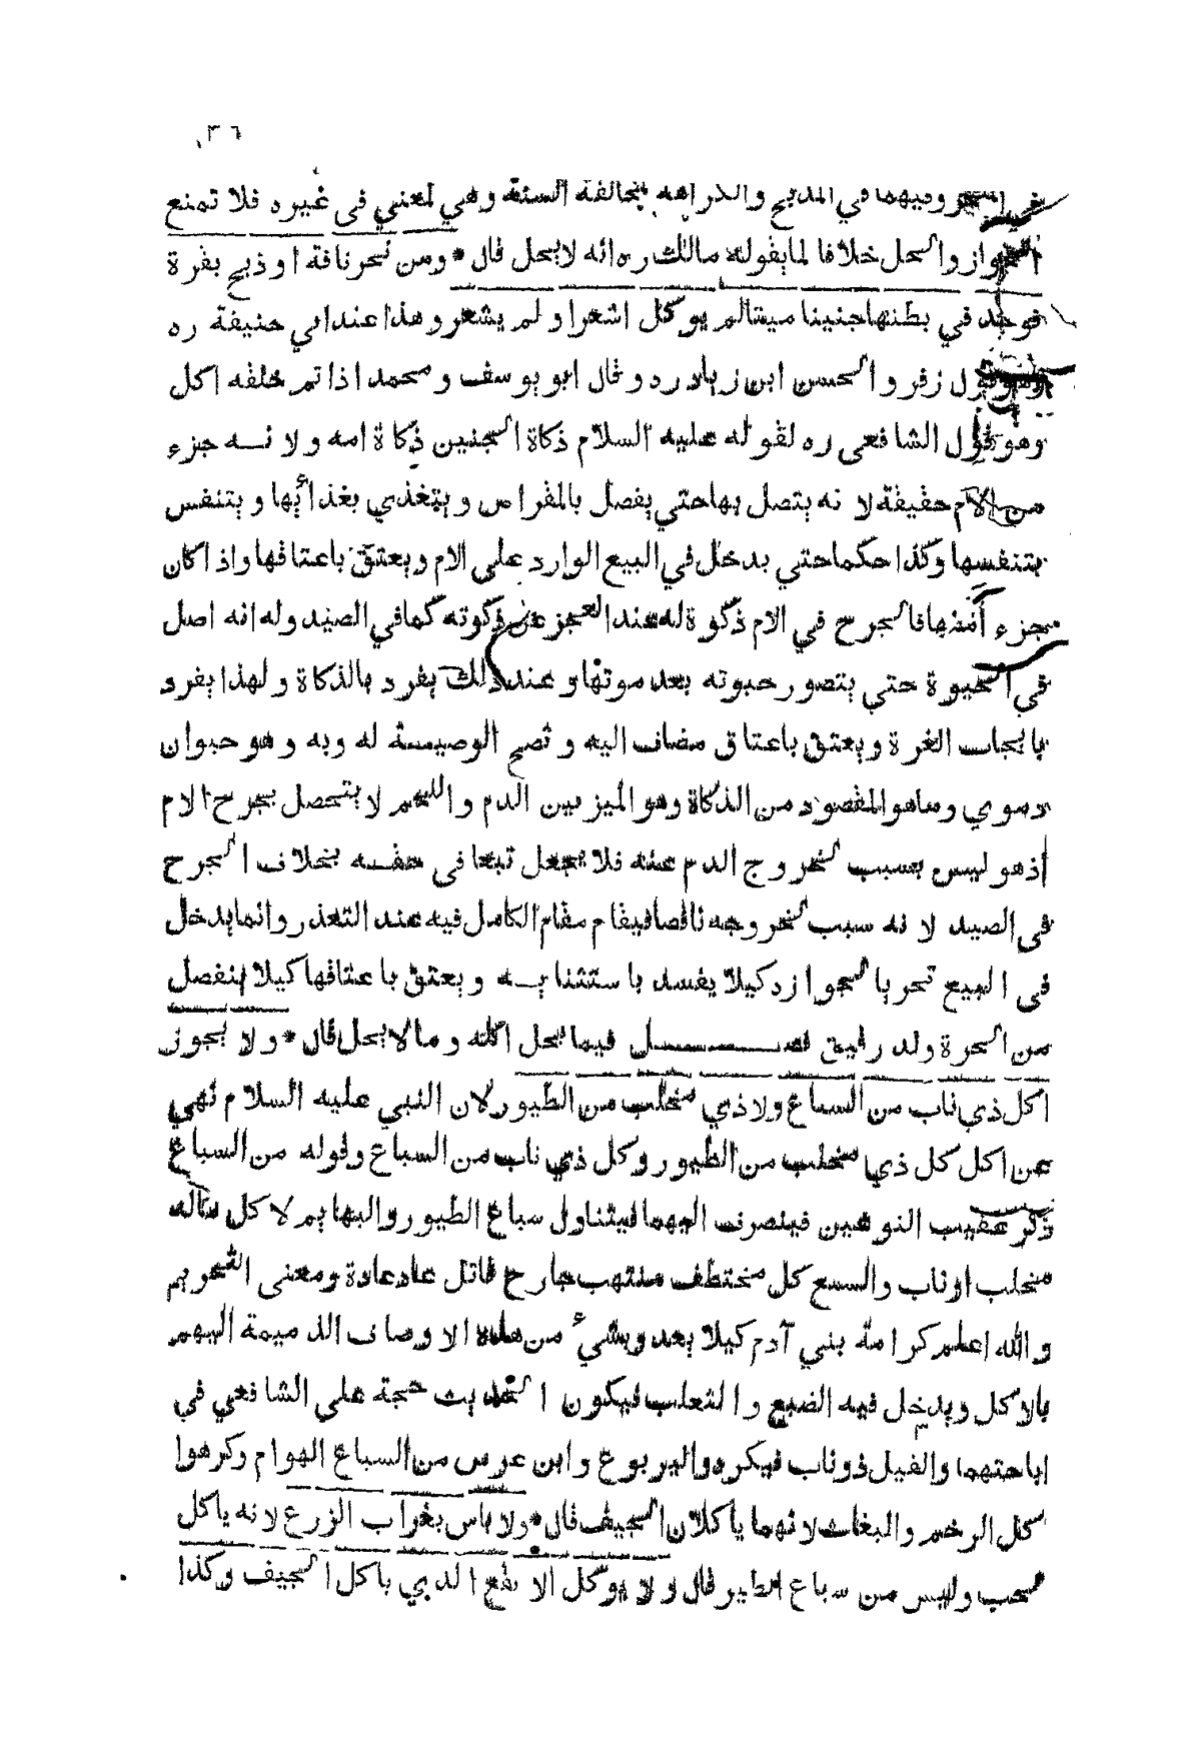 ٣٦١
في المنحر وفيهما في المذبح والكراهة لمخالفة السنة وهي لمعني في غيره فلا تمنع
الجواز والحل خلافا لما يقوله مالك ره انه لا يحل قال * ومن نحر ناقة او ذبح بقرة
فوجد في بطنها جنينا ميتا لم يوكل اشعر او لم يشعر وهذا عند ابي حنيفة ره
وهو قول زفر والحسن ابن زياد ره وقال ابو يوسف ومحمد اذا تم خلقه اكل
وهو قول الشافعي ره لقوله عليه السلام ذكاة الجنين ذكاة امه ولانه جزء
من الام حقيقة لانه يتصل بها حتي يفصل بالمقراض ويتغذي بغذائها ويتنفس
بتنفسها وكذا حكما حتي يدخل في البيع الوارد علي الام ويعتق باعتاقها واذا كان
جزء أمنها فالجرح في الام ذكوة له عند العجز عن ذكوته كما في الصيد وله انه اصل
في الحيوة حتي يتصور حيوته بعد موتها وعند ذلك يفرد بالذكاة ولهذا يفرد
بايجاب الغرة ويعتق باعتاق مضاف اليه وتصح الوصيسة له وبه وهو حيوان
دموي وما هو المقصود من الذكاة وهو الميز بين الدم واللحم لا يتحصل بجرح الام
أذ هو ليس بسبب لخروج الدم عنه فلا يجعل تبعا في حقه بخلاف الجرح
في الصيد لانه سبب لخروجه ناقصا فيقام مقام الكامل فيه عند التعذر وانما يدخل
في البيع تحريا للجواز دكيلا يفسد باستثنايه ويعتق باعتاقها كيلا ينفصل
من الحرة ولد رقيق فصل فيما يحل اكله وما لا يحل قال * ولا يجوز
اكل ذي ناب من السباع ولا ذي مخلب من الطيور لان النبي عليه السلام نهي
عن اكل كل ذي مخلب من الطيور وكل ذي ناب من السباع وقوله من السباع
ذكر عقيب النوعين فينصرف اليهما فيتناول سباع الطيور والبهايم لا كل ماله
مخلب او ناب والسبع كل مختطف منتهب جارح قاتل عاد عادة ومعنى التحريم
والله اعلم كرامة بني آدم كيلا يعدو بشيء من هذه الاوصاف الذميمة اليهم
بالاكل ويدخل فيه الضبع والثعلب فيكون الحديث حجة علي الشافعي في
اباحتهما والفيل ذو ناب فيكره واليربوع وابن عرس من السباع الهوام وكرهوا
كل الرخم والبغاث لانهما يأكلان الجيف قال * ولا باس بغراب الزرع لانه ياكل
الحب وليس من سباع الطير قال ولا يوكل الابقع الذي ياكل الجيف وكذا